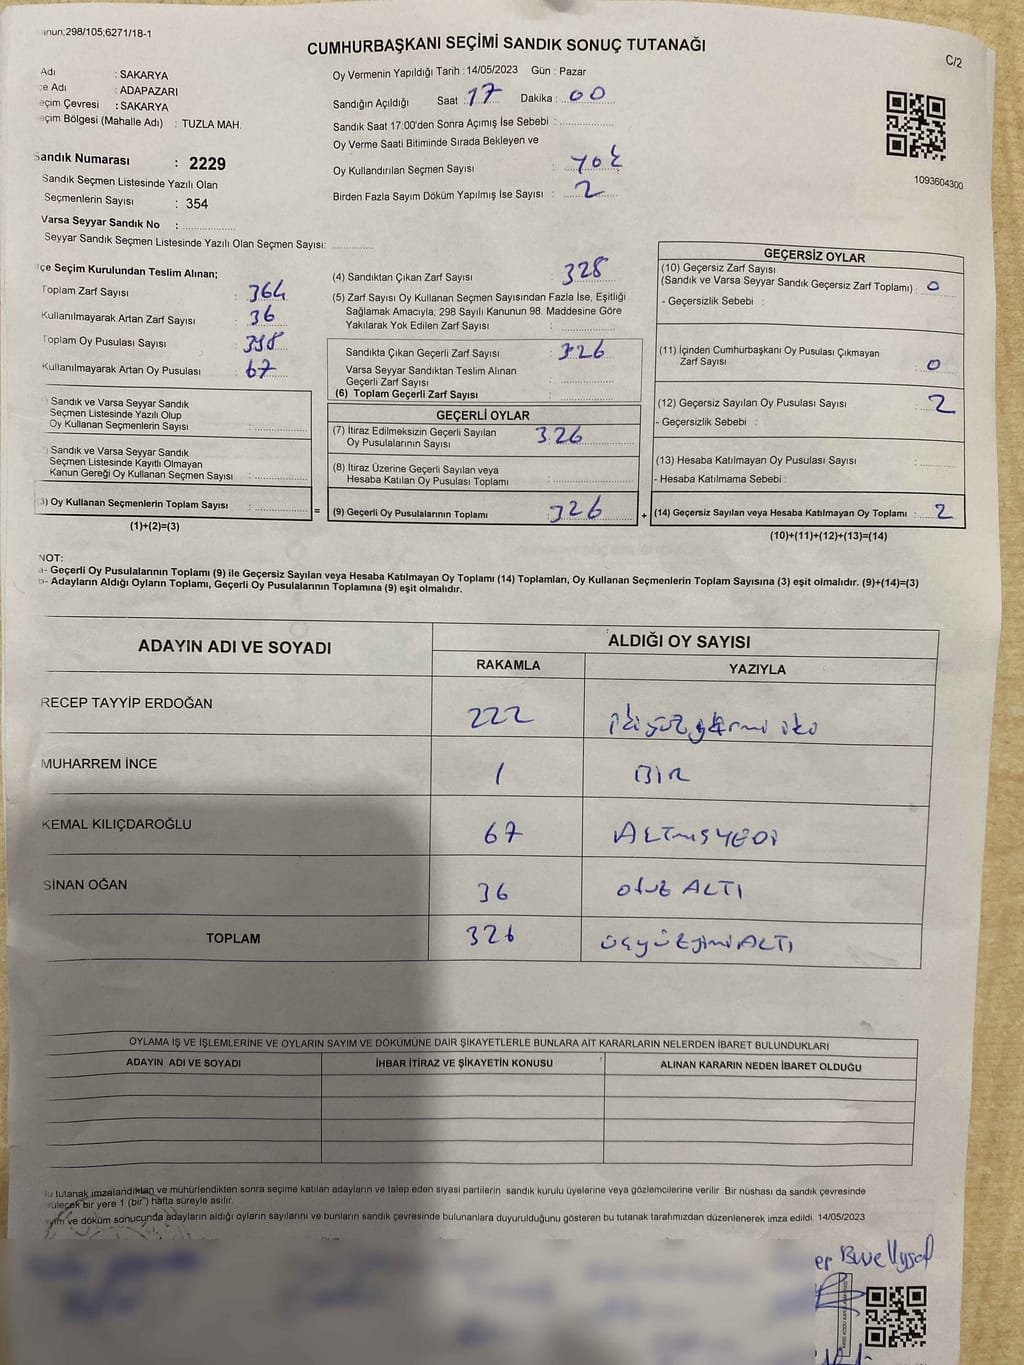 anun;298/105;6271/18-1
CUMHURBAŞKANI SEÇİMİ SANDIK SONUÇ TUTANAĞI
C/2
Adı : SAKARYA
çe Adı : ADAPAZARI
eçim Çevresi : SAKARYA
eçim Bölgesi (Mahalle Adı) : TUZLA MAH.
Sandık Numarası : 2229
Sandık Seçmen Listesinde Yazılı Olan
Seçmenlerin Sayısı : 354
Varsa Seyyar Sandık No :
Seyyar Sandık Seçmen Listesinde Yazılı Olan Seçmen Sayısı:
Oy Vermenin Yapıldığı Tarih : 14/05/2023 Gün : Pazar
Sandığın Açıldığı Saat : 17 Dakika : 00
Sandık Saat 17:00'den Sonra Açımış İse Sebebi :
Oy Verme Saati Bitiminde Sırada Bekleyen ve
Oy Kullandırılan Seçmen Sayısı : yok
Birden Fazla Sayım Döküm Yapılmış İse Sayısı : 2
1093604300
çe Seçim Kurulundan Teslim Alınan;
Toplam Zarf Sayısı : 364
Kullanılmayarak Artan Zarf Sayısı : 36
Toplam Oy Pusulası Sayısı :
Kullanılmayarak Artan Oy Pusulası : 67
) Sandık ve Varsa Seyyar Sandık
Seçmen Listesinde Yazılı Olup
Oy Kullanan Seçmenlerin Sayısı :
) Sandık ve Varsa Seyyar Sandık
Seçmen Listesinde Kayıtlı Olmayan
Kanun Gereği Oy Kullanan Seçmen Sayısı :
3) Oy Kullanan Seçmenlerin Toplam Sayısı : =
(1)+(2)=(3)
(4) Sandıktan Çıkan Zarf Sayısı : 328
(5) Zarf Sayısı Oy Kullanan Seçmen Sayısından Fazla İse, Eşitliği
Sağlamak Amacıyla; 298 Sayılı Kanunun 98. Maddesine Göre
Yakılarak Yok Edilen Zarf Sayısı :
Sandıkta Çıkan Geçerli Zarf Sayısı : 326
Varsa Seyyar Sandıktan Teslim Alınan
Geçerli Zarf Sayısı :
(6) Toplam Geçerli Zarf Sayısı :
GEÇERLİ OYLAR
(7) İtiraz Edilmeksizin Geçerli Sayılan
Oy Pusulalarının Sayısı : 326
(8) İtiraz Üzerine Geçerli Sayılan veya
Hesaba Katılan Oy Pusulası Toplamı :
(9) Geçerli Oy Pusulalarının Toplamı : 326 +
GEÇERSİZ OYLAR
(10) Geçersiz Zarf Sayısı
(Sandık ve Varsa Seyyar Sandık Geçersiz Zarf Toplamı) : 0
- Geçersizlik Sebebi :
(11) İçinden Cumhurbaşkanı Oy Pusulası Çıkmayan
Zarf Sayısı : 0
(12) Geçersiz Sayılan Oy Pusulası Sayısı : 2
- Geçersizlik Sebebi :
(13) Hesaba Katılmayan Oy Pusulası Sayısı :
- Hesaba Katılmama Sebebi :
(14) Geçersiz Sayılan veya Hesaba Katılmayan Oy Toplamı : 2
(10)+(11)+(12)+(13)=(14)
NOT:
a- Geçerli Oy Pusulalarının Toplamı (9) ile Geçersiz Sayılan veya Hesaba Katılmayan Oy Toplamı (14) Toplamları, Oy Kullanan Seçmenlerin Toplam Sayısına (3) eşit olmalıdır. (9)+(14)=(3)
b- Adayların Aldığı Oyların Toplamı, Geçerli Oy Pusulalarının Toplamına (9) eşit olmalıdır.
ADAYIN ADI VE SOYADI ALDIĞI OY SAYISI
RAKAMLA YAZIYLA
RECEP TAYYİP ERDOĞAN 222 ikiyüz yirmi iki
MUHARREM İNCE 1 BİR
KEMAL KILIÇDAROĞLU 67 ALTMIŞYEDİ
SİNAN OĞAN 36 otuz ALTI
TOPLAM 326 üçyüzyirmiALTI
OYLAMA İŞ VE İŞLEMLERİNE VE OYLARIN SAYIM VE DÖKÜMÜNE DAİR ŞİKAYETLERLE BUNLARA AİT KARARLARIN NELERDEN İBARET BULUNDUKLARI
ADAYIN ADI VE SOYADI İHBAR İTİRAZ VE ŞİKAYETİN KONUSU ALINAN KARARIN NEDEN İBARET OLDUĞU
u tutanak imzalandıktan ve mühürlendikten sonra seçime katılan adayların ve talep eden siyasi partilerin sandık kurulu üyelerine veya gözlemcilerine verilir. Bir nüshası da sandık çevresinde
rülecek bir yere 1 (bir) hafta süreyle asılır.
ayım ve döküm sonucunda adayların aldığı oyların sayılarını ve bunların sandık çevresinde bulunanlara duyurulduğunu gösteren bu tutanak tarafımızdan düzenlenerek imza edildi. 14/05/2023